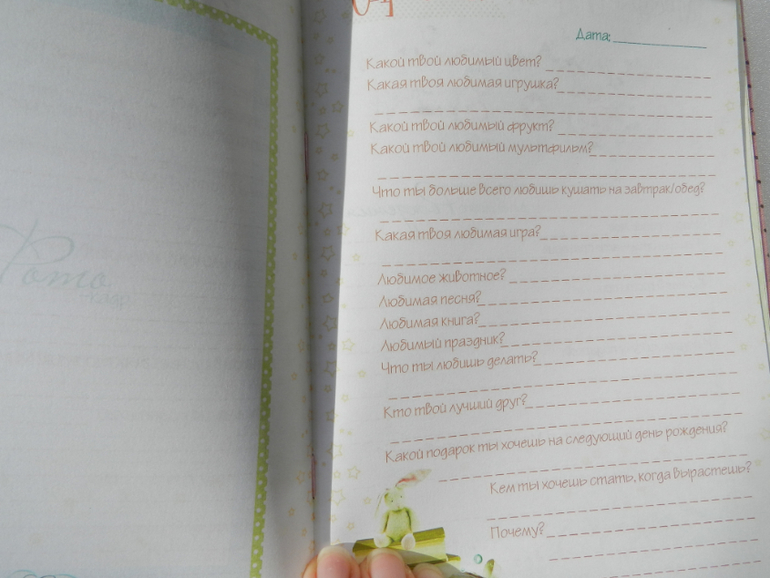 Фото
Дата:
Какой твой любимый цвет?
Какая твоя любимая игрушка?
Какой твой любимый фрукт?
Какой твой любимый мультфильм?
Что ты больше всего любишь кушать на завтрак/обед?
Какая твоя любимая игра?
Любимое животное?
Любимая песня?
Любимая книга?
Любимый праздник?
Что ты любишь делать?
Кто твой лучший друг?
Какой подарок ты хочешь на следующий день рождения?
Кем ты хочешь стать, когда вырастешь?
Почему?